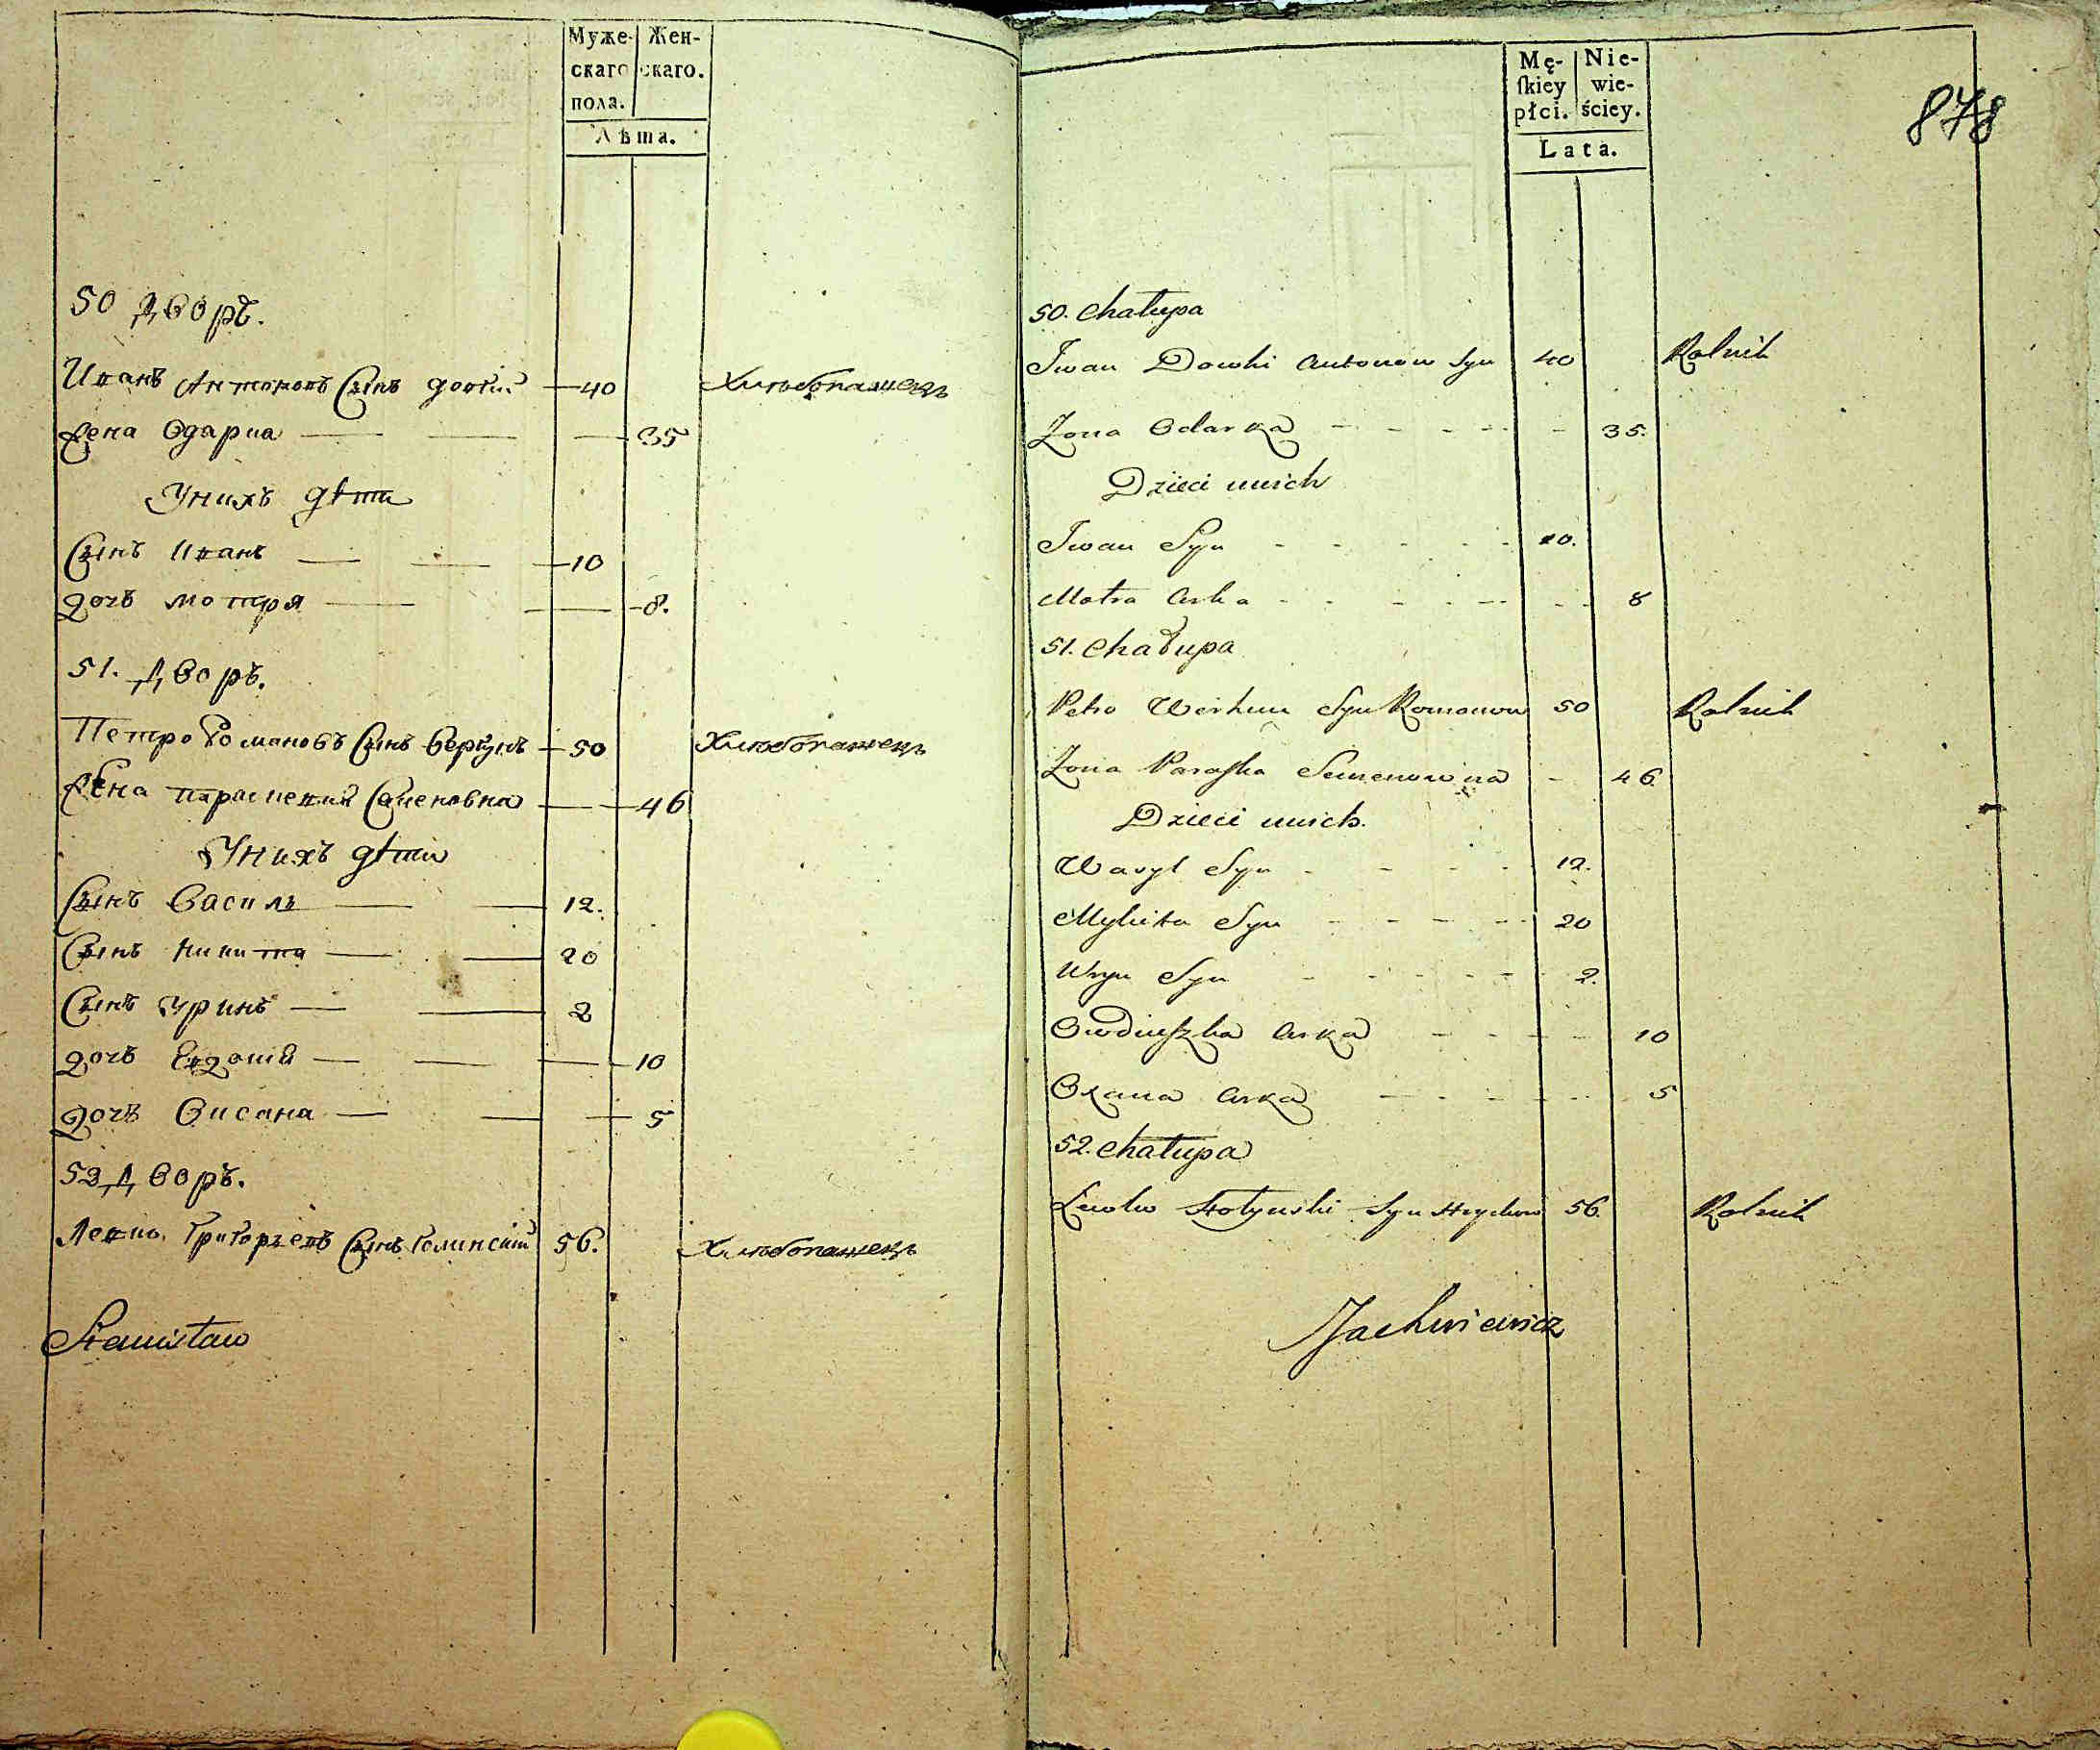 Муже-
скаго
пола.
Жен-
скаго.
Лѣта.
50 Дворъ.
Иванъ Антоновъ Сынъ довгій 40 Хлѣбопашецъ
Жена Одарка 35
У нихъ дѣти
Сынъ Иванъ 10
дочь мотря 8.
51. Дворъ.
Петро Романовъ Сынъ Веркунъ 50 Хлѣбопашецъ
Жена Семеновна 46
У нихъ дѣти
Сынъ Василь 12.
Сынъ Никита 20
Сынъ Уринъ 2
дочь 10
дочь Оксана 5
52 Дворъ.
Григорьевъ Сынъ 56. Хлѣбопашецъ
Stanisław
Mę-
skiey
płci.
Nie-
wie-
ściey.
Lata.
878
50. Chałupa
Iwan Dowhi Antonow Syn 40 Rolnik
Zona Odarka 35.
Dzieci unich
Iwan Syn 10.
Motra Curka 8
51. Chałupa
Petro Werkun Syn Romanow 50 Rolnik
Zona Paraska Semenowna 46
Dzieci unich.
Wasyl Syn 12.
Mykita Syn 20
Uryn Syn 2.
Owdiuszka Curka 10
Oxana Curka 5
52. Chałupa
Syn 56. Rolnik
Jachwiewicz